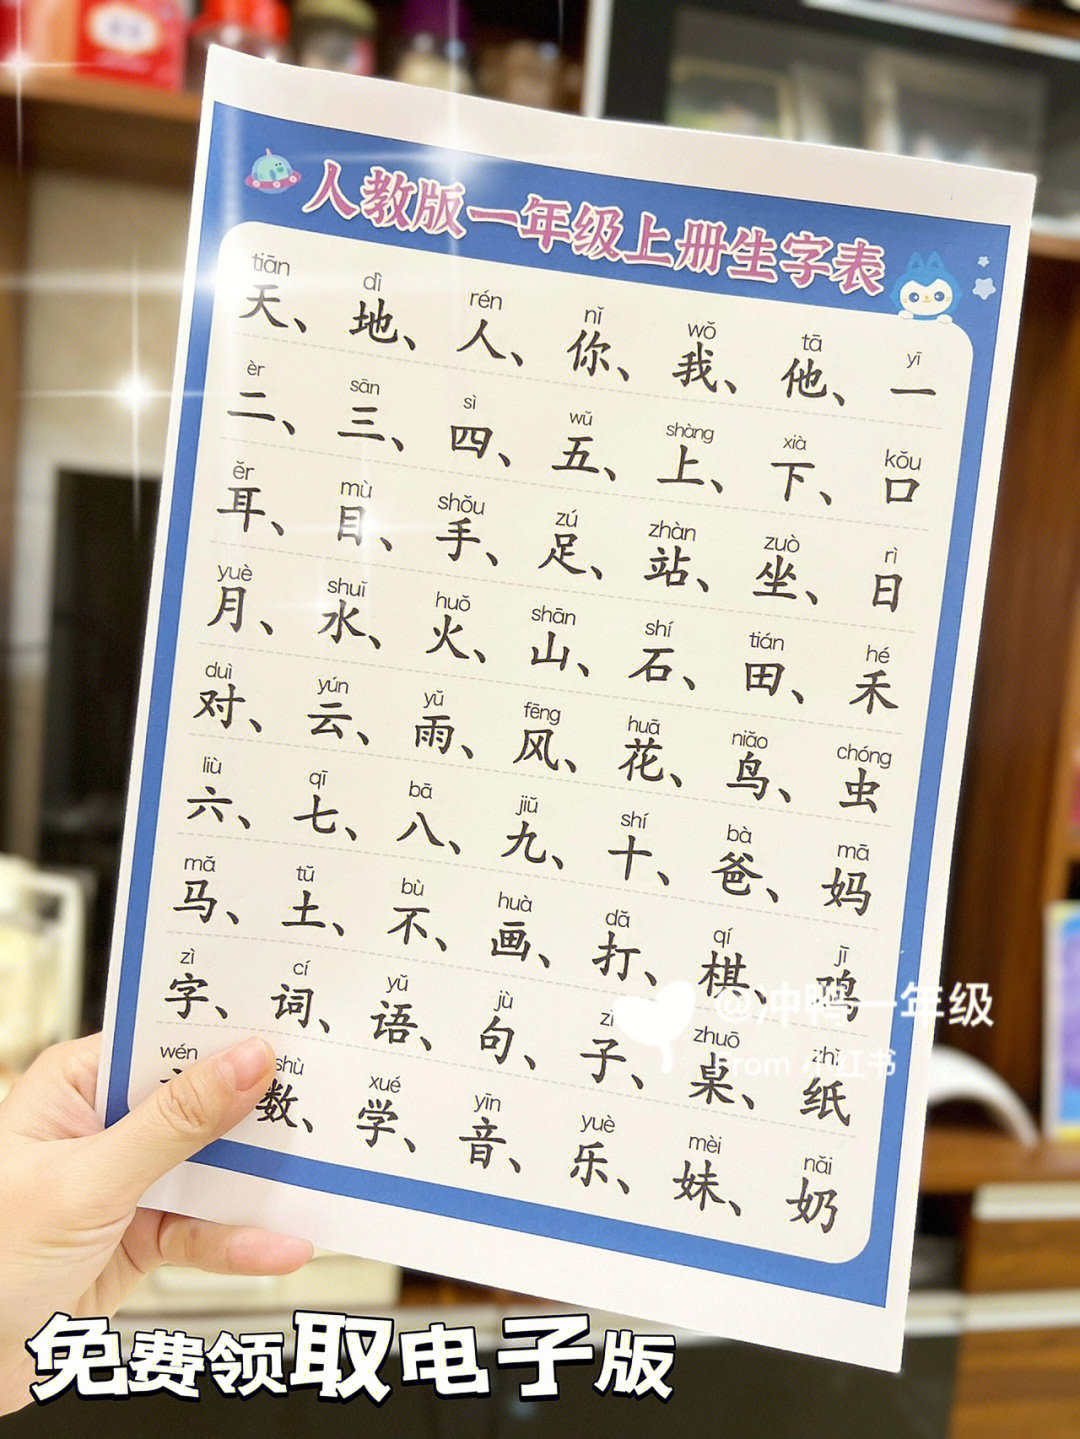 人教版一年级上册生字表
tiān dì rén nǐ wǒ tā yī
天、地、人、你、我、他、一
èr sān sì wǔ shàng xià kǒu
二、三、四、五、上、下、口
ěr mù shǒu zú zhàn zuò rì
耳、目、手、足、站、坐、日
yuè shuǐ huǒ shān shí tián hé
月、水、火、山、石、田、禾
duì yún yǔ fēng huā niǎo chóng
对、云、雨、风、花、鸟、虫
liù qī bā jiǔ shí bà mā
六、七、八、九、十、爸、妈
mǎ tǔ bù huà dǎ qí jī
马、土、不、画、打、棋、鸡
zì cí yǔ jù zǐ zhuō zhǐ
字、词、语、句、子、桌、纸
wén shù xué yīn yuè mèi nǎi
数、学、音、乐、妹、奶
@冲鸭一年级
From 小红书
免费领取电子版